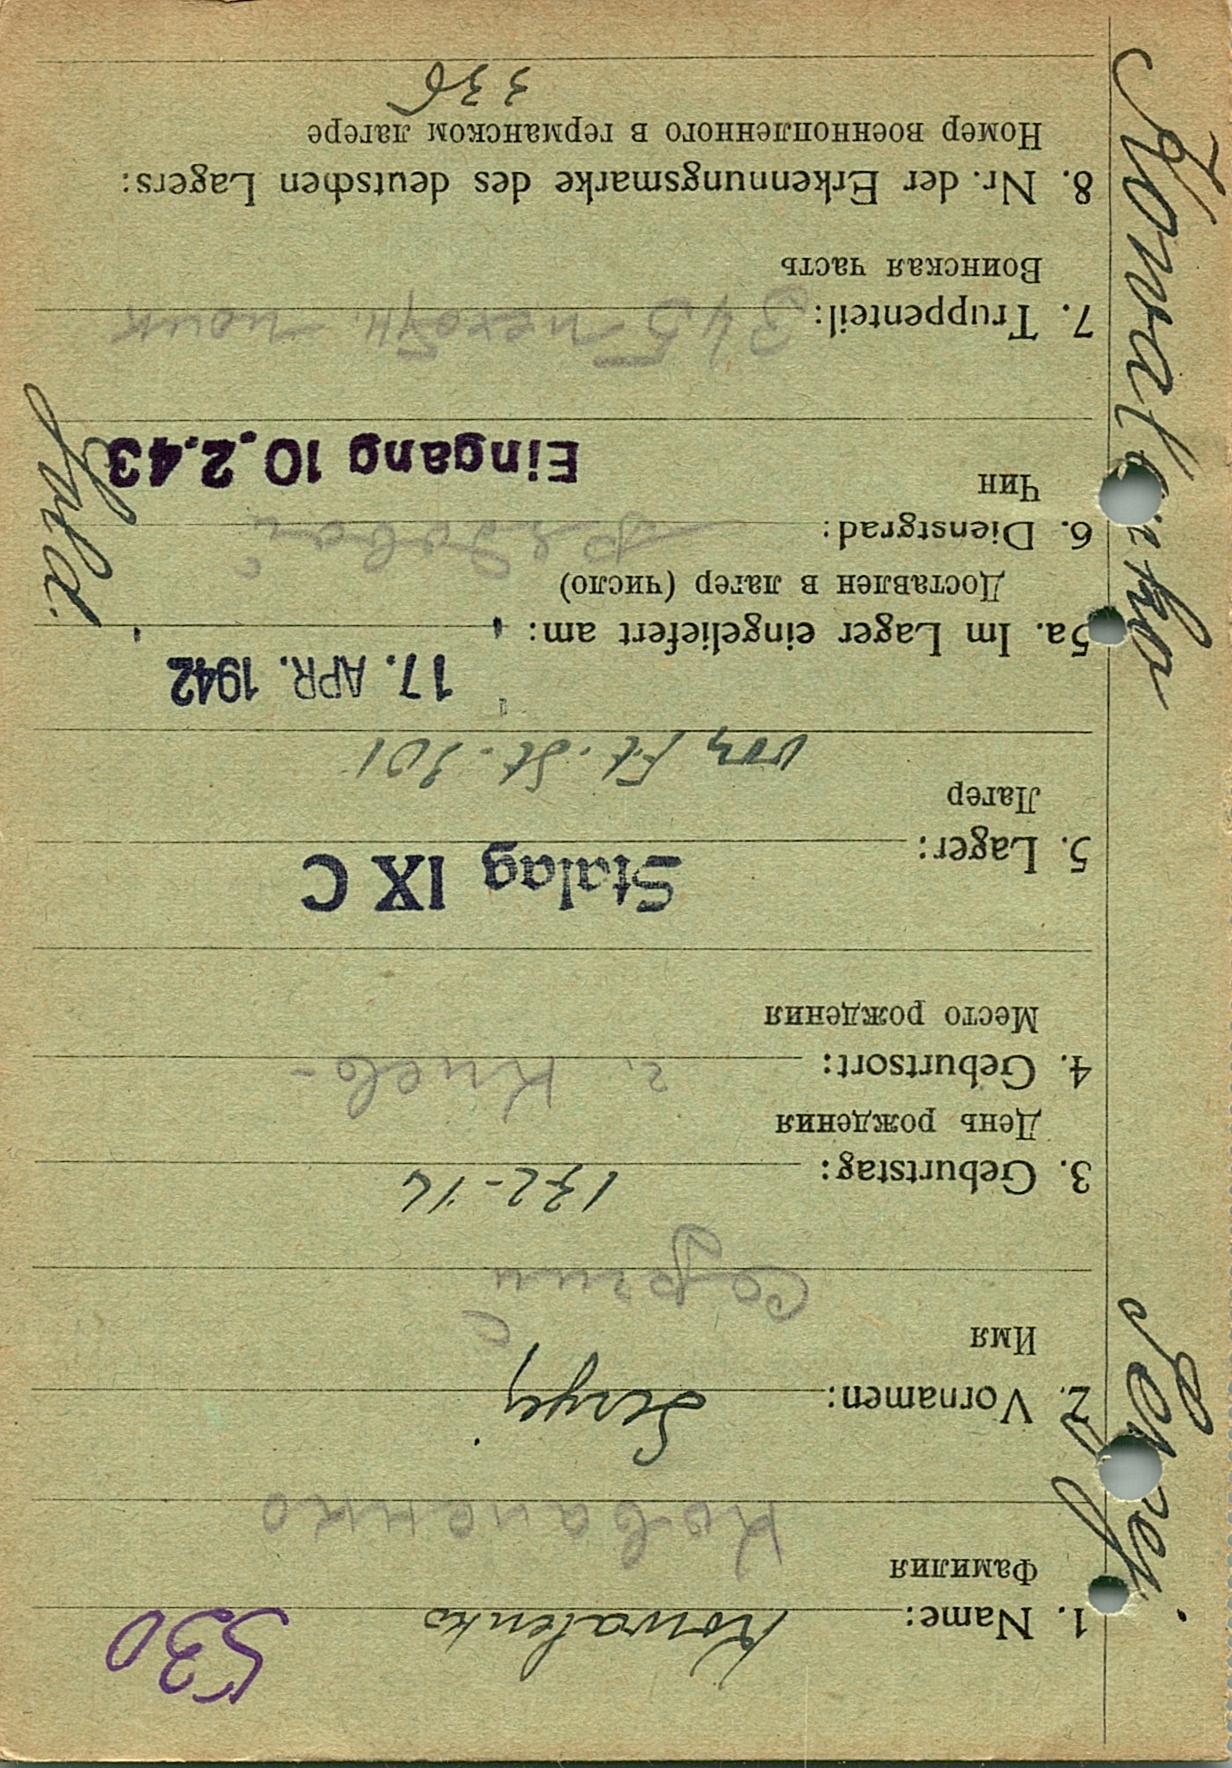 530
1. Name: Kowalenko
Фамилия
Коваленко
2. Vornamen: Sergej
Имя
Сергий
3. Geburtstag:
День рождения
4. Geburtsort: г. Киев-
Место рождения
Stalag IX C
5. Lager:
Лагер
vom Ft. St. 301
17. APR. 1942
5a. Im Lager eingeliefert am:
Доставлен в лагер (число)
6. Dienstgrad: Рядовой
Чин
Eingang 10.2.43
Sold.
7. Truppenteil: 345 пехотн. полк
Воинская часть
8. Nr. der Erkennungsmarke des deutschen Lagers:
Номер военнопленного в германском лагере
336
Kowalenko
Sergej